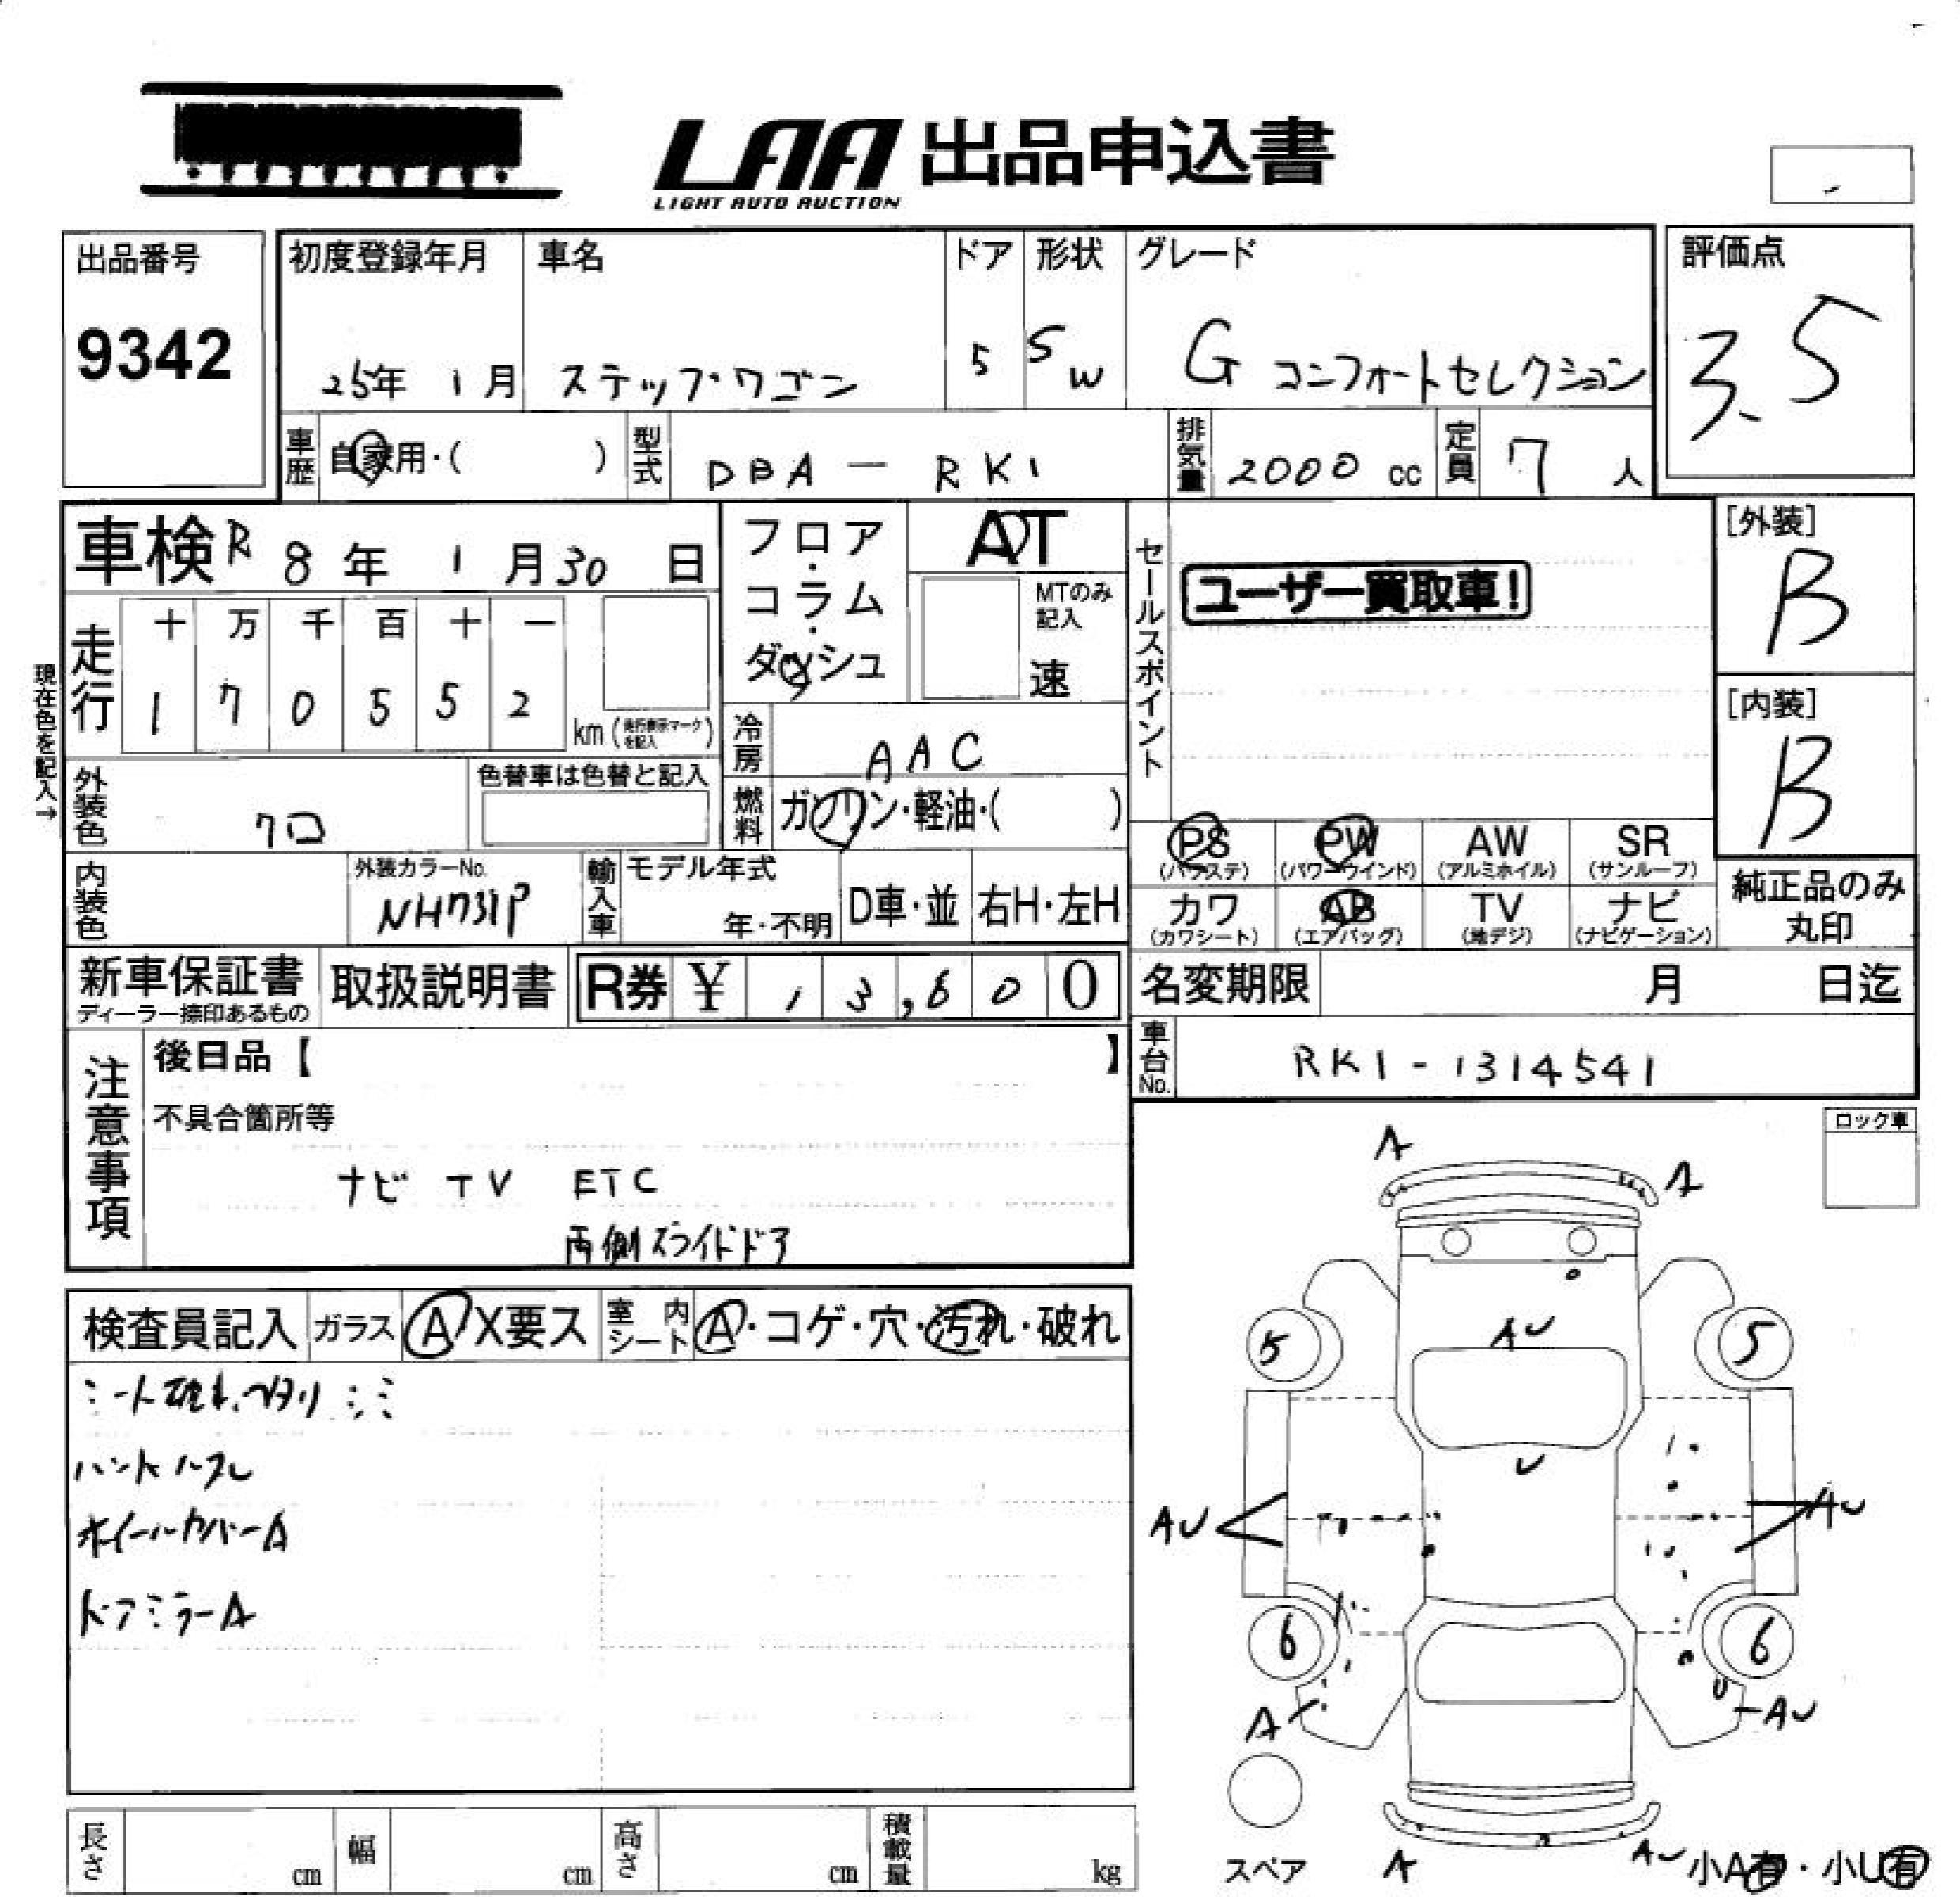 LAA 出品申込書
LIGHT AUTO AUCTION
出品番号
9342
初度登録年月
25年 1月
車名
ステップ・ワゴン
ドア
5
形状
SW
グレード
G コンフォートセレクション
評価点
3.5
車歴
自家用・( )
型式
DBA - RK1
排気量
2000 cc
定員
7 人
車検 R 8年 1月 30日
フロア・コラム・ダッシュ
AT
MTのみ記入
速
セールスポイント
ユーザー買取車!
[外装]
B
[内装]
B
現在色を記入→
走行
十 万 千 百 十 一
1 7 0 5 5 2
km (走行表示マークを記入)
冷房
AAC
燃料
ガソリン・軽油・( )
外装色
クロ
色替車は色替と記入
内装色
外装カラーNo.
NH731P
輸入車
モデル年式
年・不明
D車・並
右H・左H
PS (パワステ)
PW (パワーウインド)
AW (アルミホイル)
SR (サンルーフ)
カワ (カワシート)
AB (エアバッグ)
TV (地デジ)
ナビ (ナビゲーション)
純正品のみ丸印
新車保証書
ディーラー捺印あるもの
取扱説明書
R券 ¥ 13,600
名変期限 月 日迄
車台No.
RK1-1314541
注意事項
後日品【 】
不具合箇所等
ナビ TV ETC
両側スライドドア
ロック車
検査員記入
ガラス
A X要ス
室内シート
A・コゲ・穴・汚れ・破れ
ハンドルスレ
ホイールカバーA
ドアミラーA
A
A
5
5
AU
U
AU
AU
6
6
A
U
AU
スペア
A
AU
小A有・小U有
長さ cm
幅 cm
高さ cm
積載量 kg